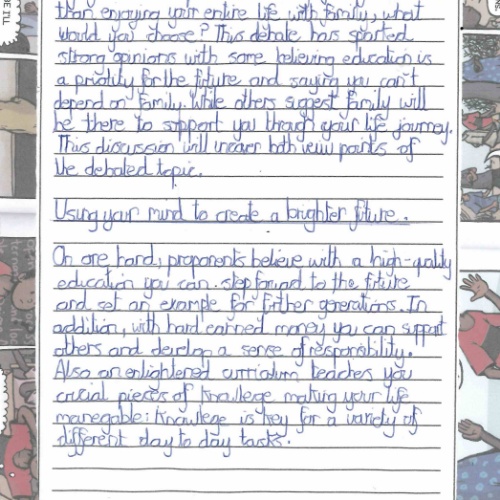 than enjoying your entire life with family, what
would you choose? This debate has sparted
strong opinions with some believing education is
a priotity for the future and saying you can't
depend on family. While others suggest family will
be there to support you through your life journey.
This discussion will uncover both veiw points of
the debated topic.
Using your mind to create a brighter future..
On one hand, proponents believe with a high-quality
education you can step forward to the future
and set an example for further generations. In
addition, with hard earned money you can support
others and develop a sense of responsibility.
Also an enlightered curriculum teaches you
crucial pieces of knowledge making your life
manegable: Knowlege is key for a variety of
different day to day tasks.